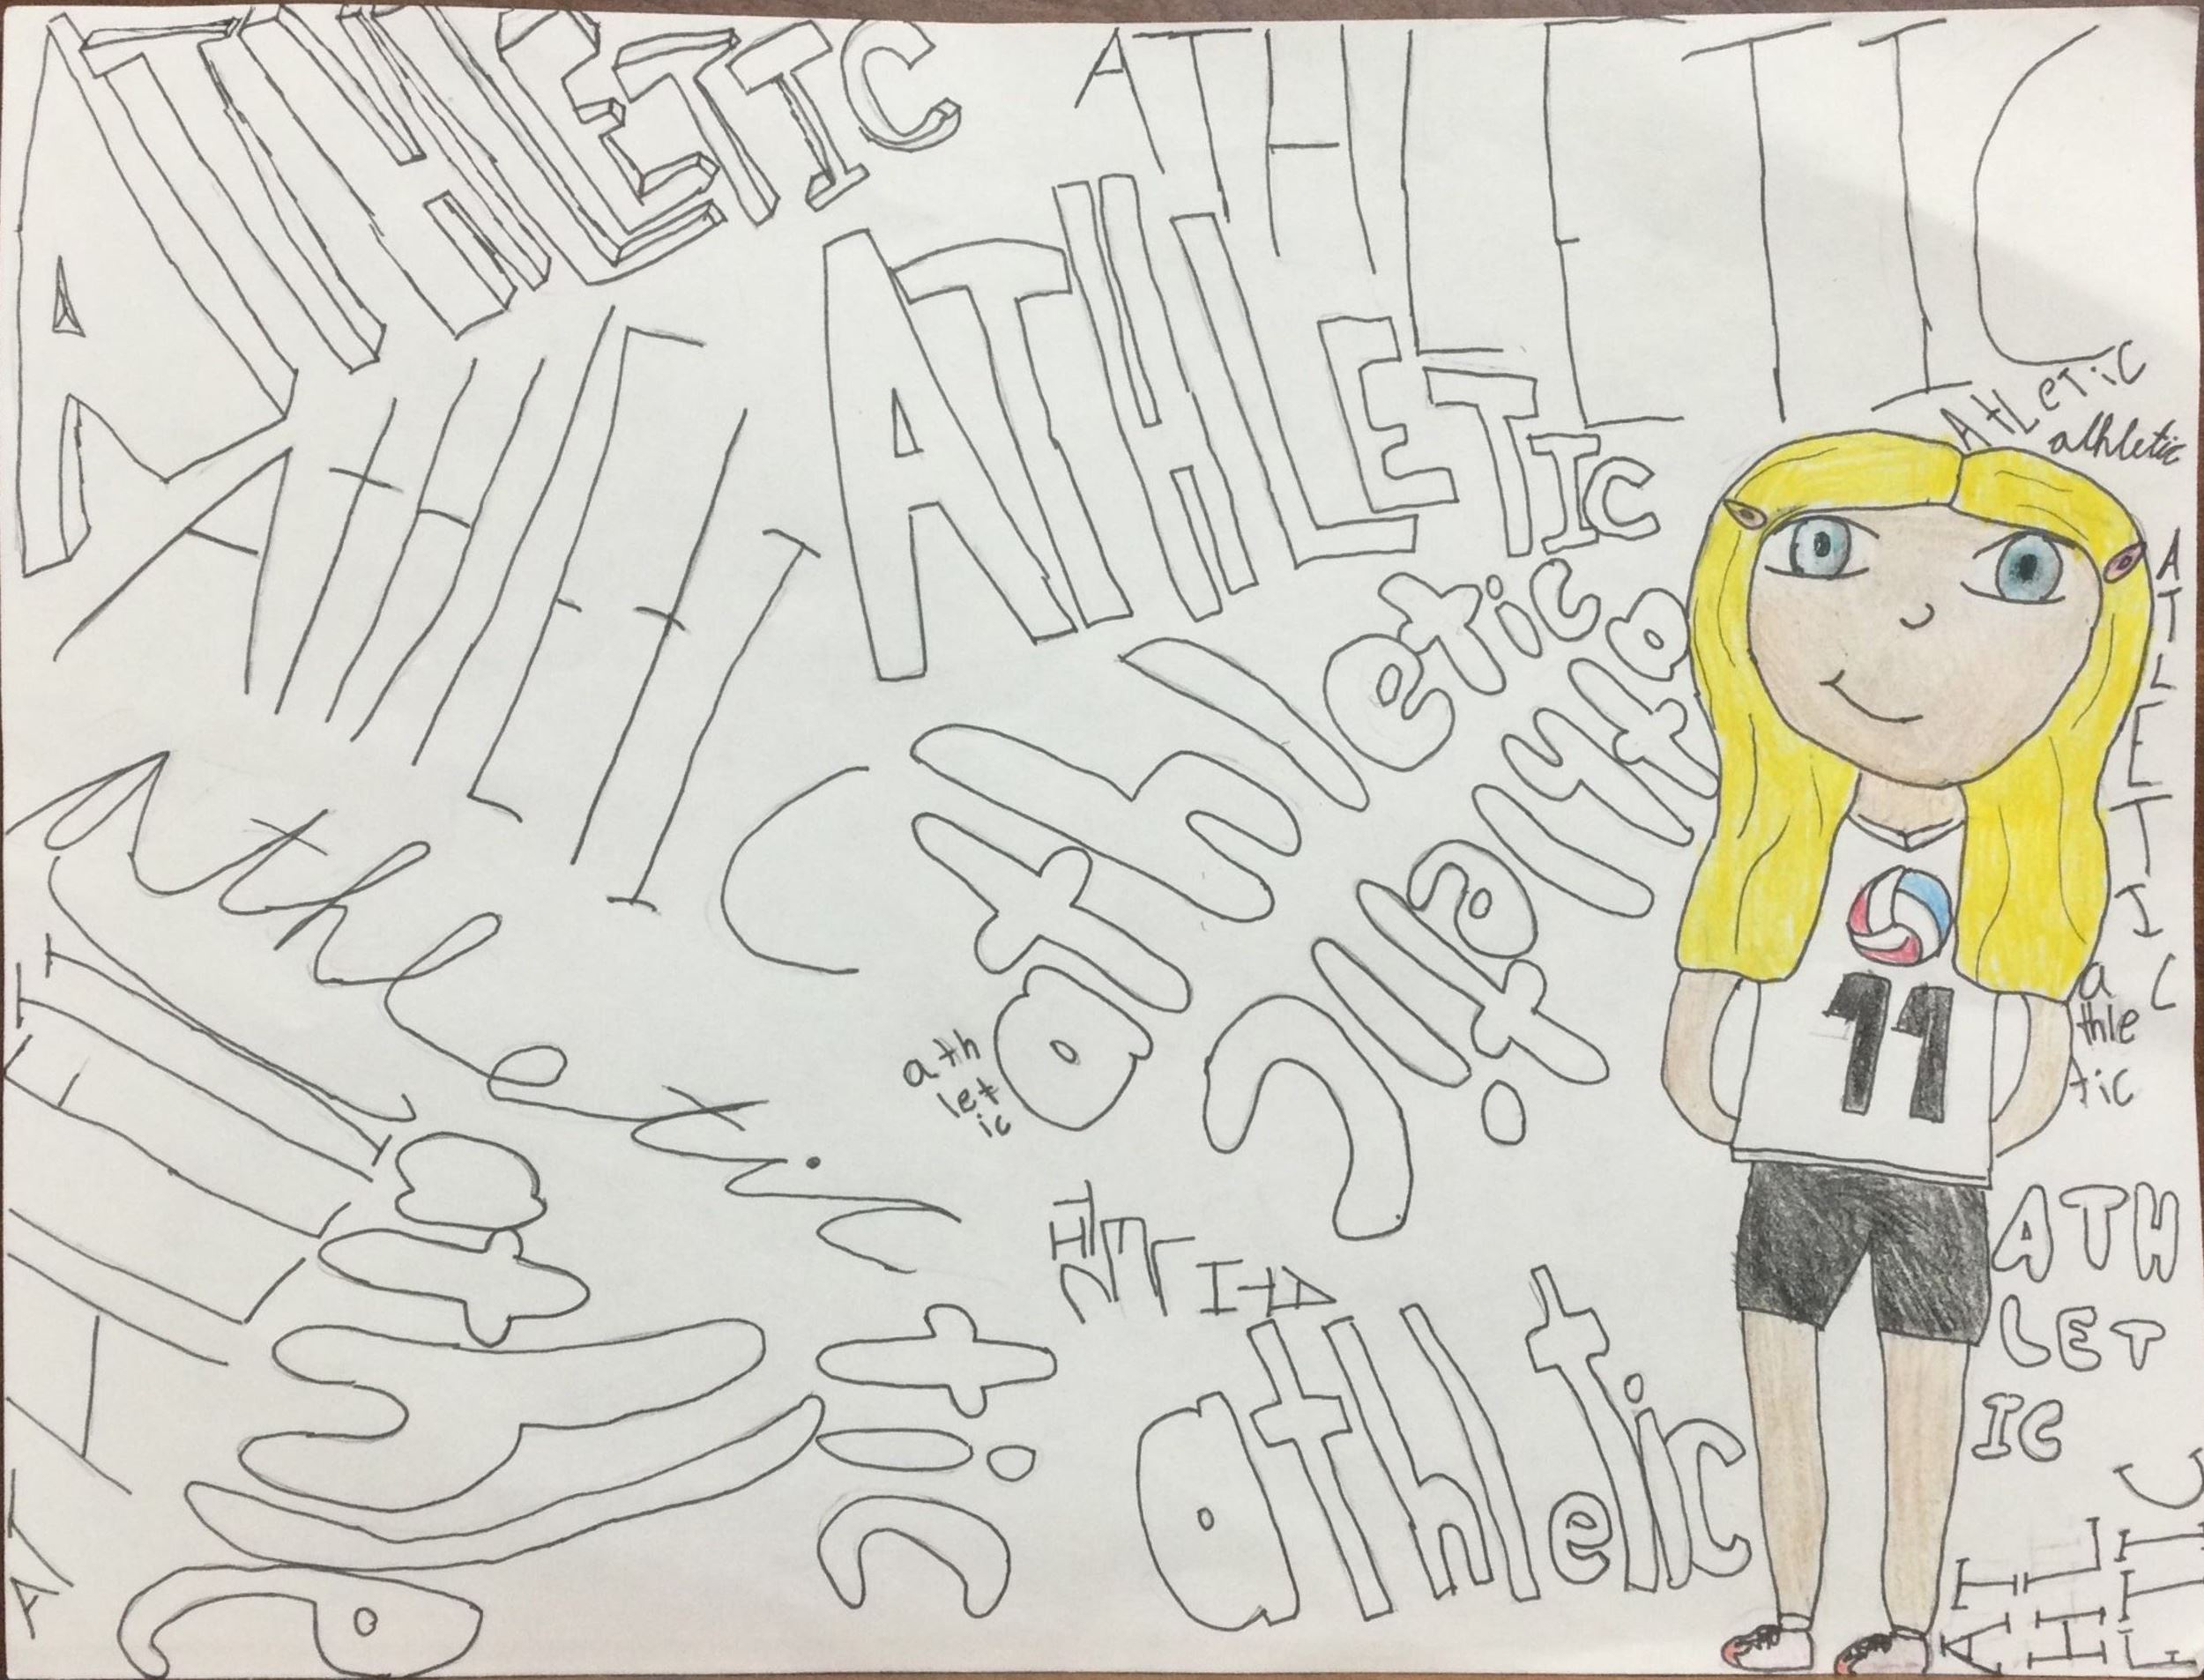 ATHLETIC
ATHLETIC
AthLeTic
athletic
ATHLETIC
ATHLETIC
athletic
athletic
ATLETIC
Athletic
ath
let
ic
a
thle
tic
11
ATHLETIC
athletic
ATHLETIC
athletic
ATH
LET
IC
AT
HL
ETIC